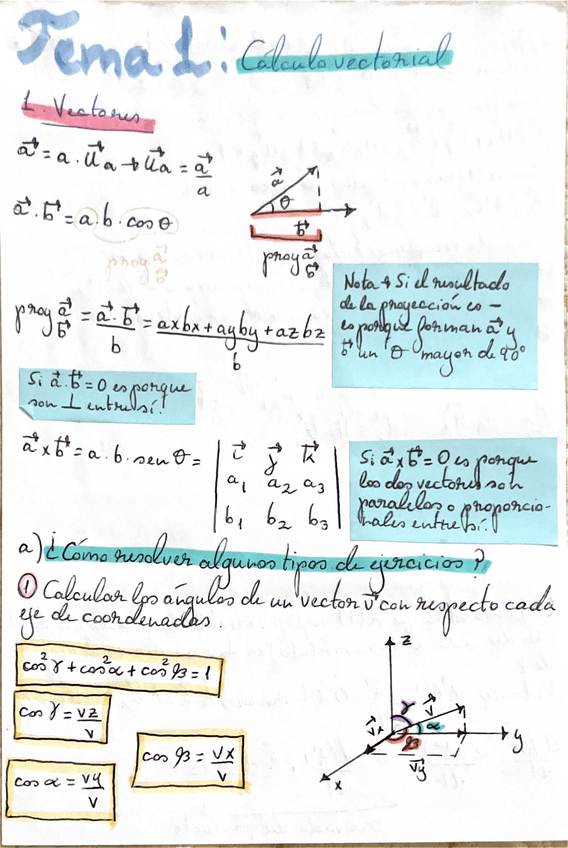 Tema 1: Cálculo vectorial
1. Vectores
a⃗ = a · u⃗a → u⃗a = a⃗/a
a⃗ · b⃗ = a · b · cos θ
proy a⃗ b⃗
a⃗
θ
b⃗
proy a⃗ b⃗
Nota → Si el resultado
de la proyección es −
es porque forman a⃗ y
b⃗ un θ mayor de 90°
proy a⃗ b⃗ = a⃗ · b⃗ / b = axbx + ayby + azbz / b
Si a⃗ · b⃗ = 0 es porque
son ⊥ entre sí!
a⃗ x b⃗ = a · b · sen θ =
i⃗ j⃗ k⃗
a1 a2 a3
b1 b2 b3
Si a⃗ x b⃗ = 0 es porque
los dos vectores son
paralelos o proporcio-
nales entre sí!
a) ¿Cómo resolver algunos tipos de ejercicios?
① Calcular los ángulos de un vector v⃗ con respecto cada
eje de coordenadas.
cos²γ + cos²α + cos²β = 1
cos γ = vz/v
cos β = vx/v
cos α = vy/v
z
γ
v⃗
v⃗x
α
β
y
v⃗y
x